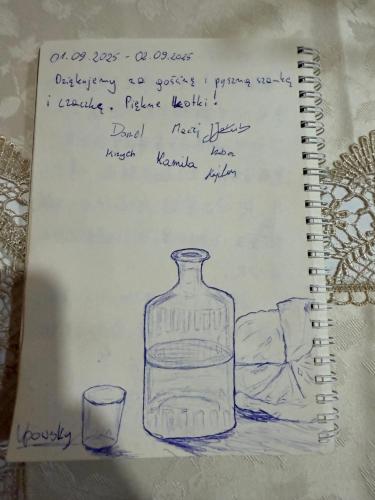 01.09.2025 - 02.09.2025
Dziękujemy za gościnę i pyszną szamkę
i czaczkę. Piękne kotki!
Daniel Maciej Jakub
Krzych Kamila Kuba